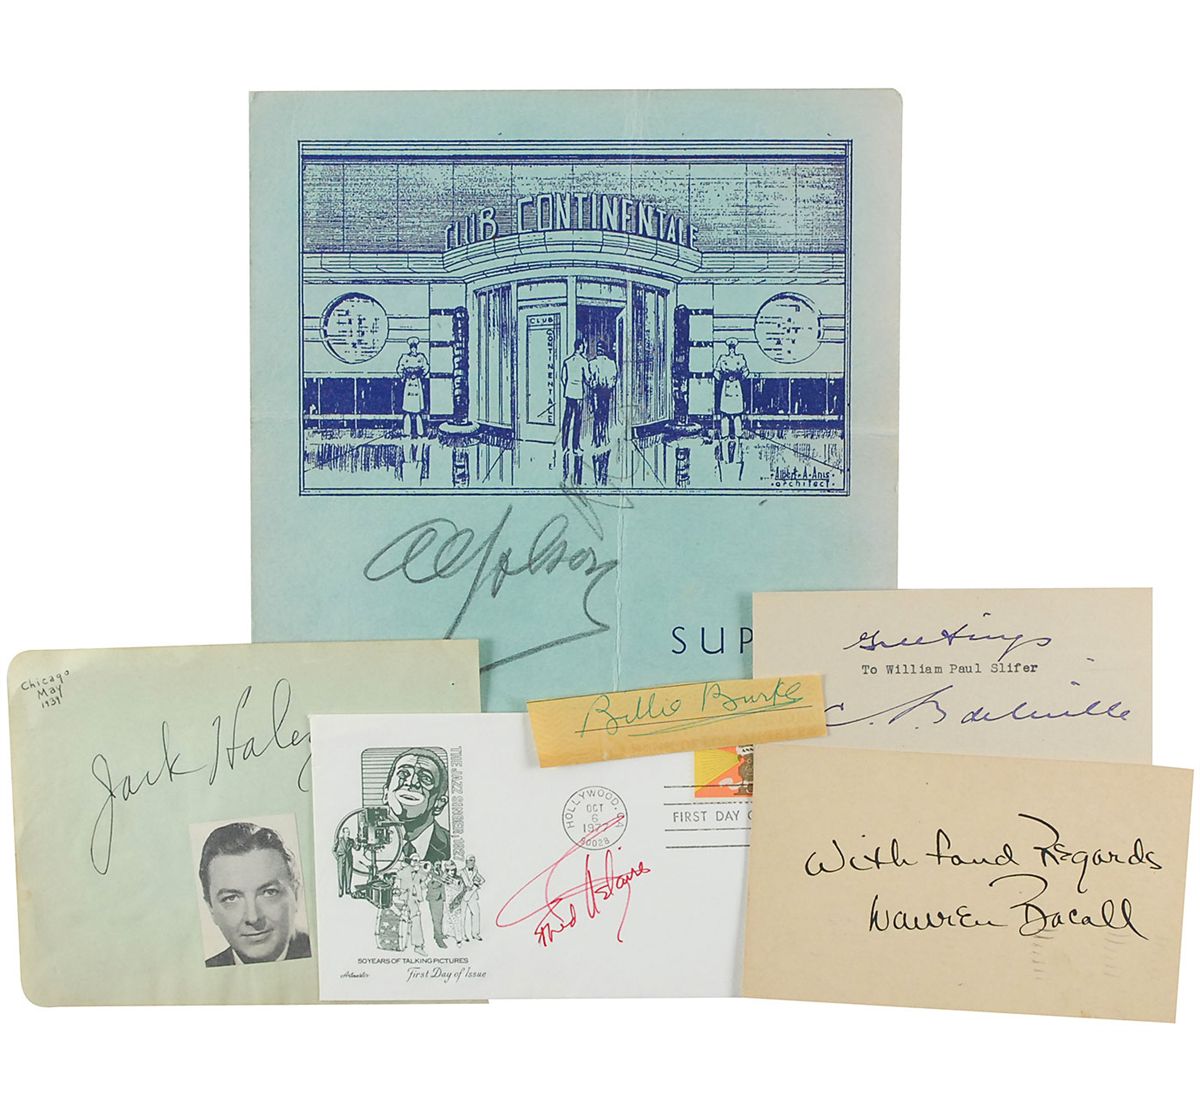 CLUB CONTINENTALE
CLUB
CONTINENTALE
Albert·A·Anis
·architect·
Al Jolson
SUP
Greetings
To William Paul Slifer
C. Bdelville
Billie Burke
Chicago
May
1939
Jack Haley
THE JAZZ SINGER
HOLLYWOOD, CA
OCT
6
1977
90028
FIRST DAY O
Fred Astaire
50 YEARS OF TALKING PICTURES
Artmaster
First Day of Issue
With fond Regards
Warren Bacall